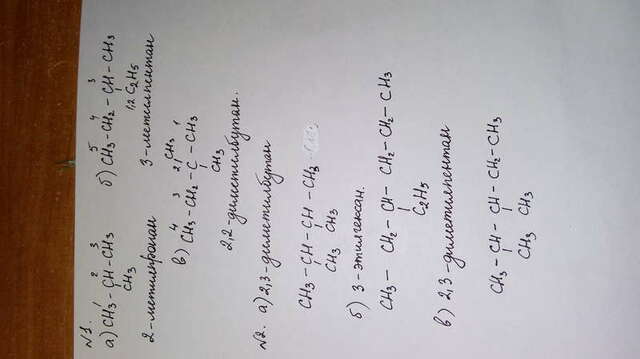 №1.
1 2 3
а) CH3 - CH - CH3
CH3
2-метилпропан
5 4 3
б) CH3 - CH2 - CH - CH3
1,2 C2H5
3-метилпентан
CH3
4 3 2 1
в) CH3 - CH2 - C - CH3
CH3
2,2-диметилбутан.
№2. а) 2,3-диметилбутан
CH3 - CH - CH - CH3
CH3 CH3
б) 3-этилгексан.
CH3 - CH2 - CH - CH2 - CH2 - CH3
C2H5
в) 2,3-диметилпентан
CH3 - CH - CH - CH2 - CH3
CH3 CH3